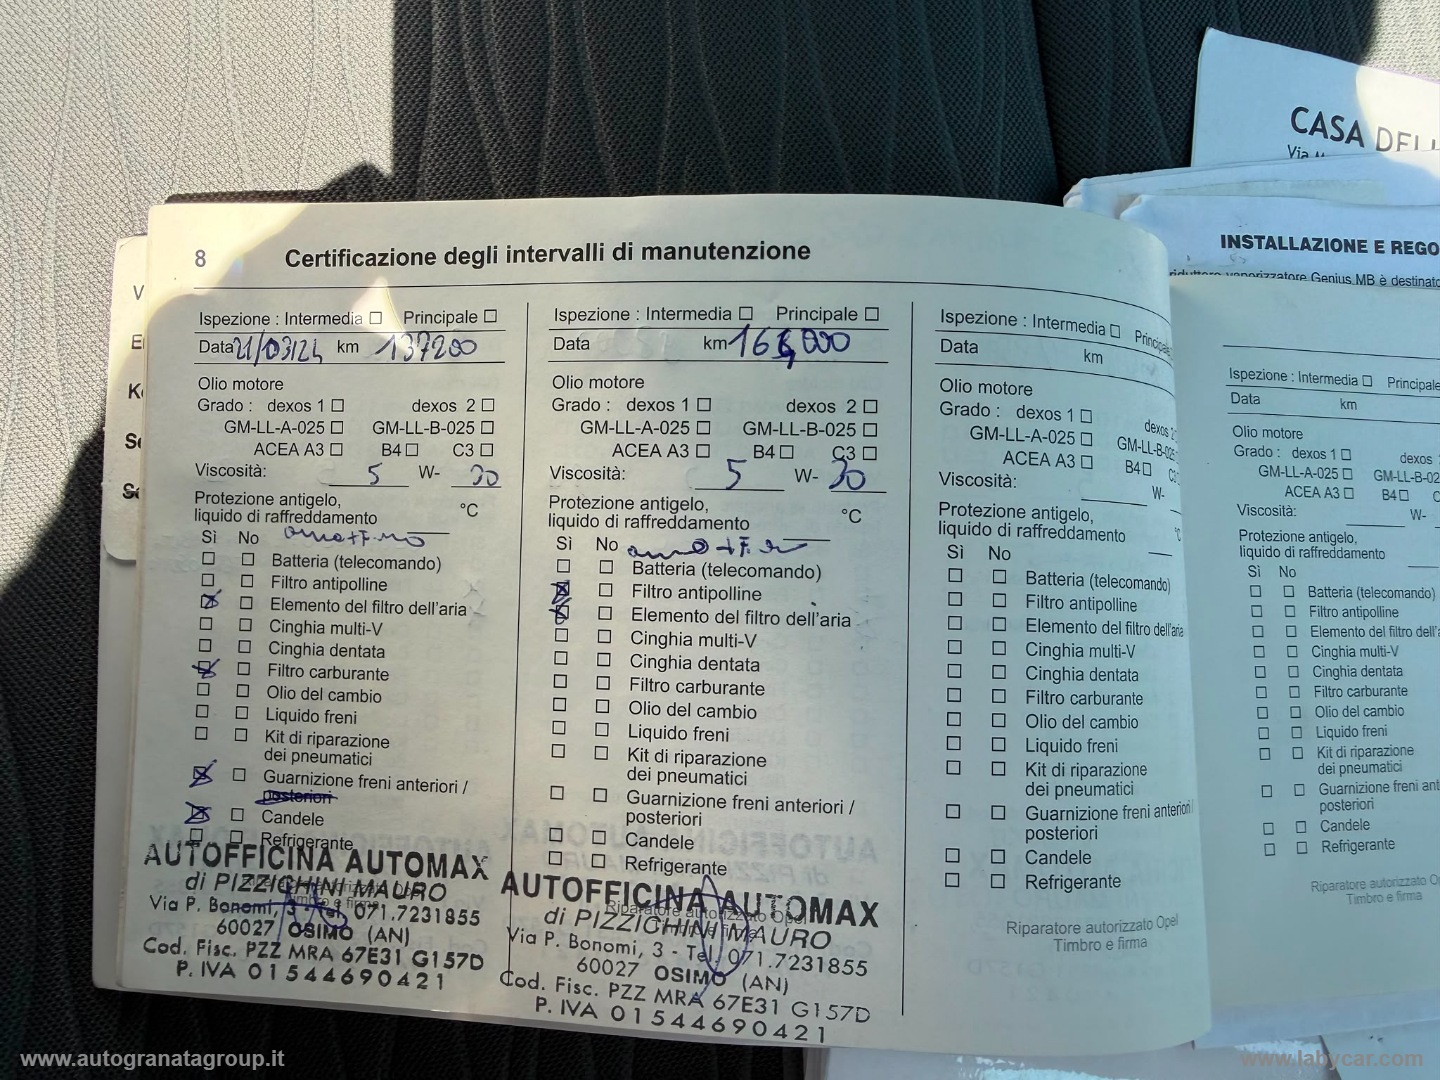 CASA DELL
Via
INSTALLAZIONE E REGO
riduttore vaporizzatore Genius MB è destinato
8 Certificazione degli intervalli di manutenzione
Ispezione : Intermedia ☐ Principale ☐
Data 21/03/24 km 137200
Olio motore
Grado : dexos 1 ☐ dexos 2 ☐
GM-LL-A-025 ☐ GM-LL-B-025 ☐
ACEA A3 ☐ B4 ☐ C3 ☐
Viscosità: 5 W- 30
Protezione antigelo, °C
liquido di raffreddamento
Sì No
☐ ☐ Batteria (telecomando)
☐ ☐ Filtro antipolline
☒ ☐ Elemento del filtro dell'aria
☐ ☐ Cinghia multi-V
☐ ☐ Cinghia dentata
☒ ☐ Filtro carburante
☐ ☐ Olio del cambio
☐ ☐ Liquido freni
☐ ☐ Kit di riparazione
dei pneumatici
☒ ☐ Guarnizione freni anteriori /
posteriori
☒ ☐ Candele
☐ ☐ Refrigerante
AUTOFFICINA AUTOMAX
di PIZZICHINI MAURO
Via P. Bonomi, 3 - Tel. 071.7231855
60027 OSIMO (AN)
Cod. Fisc. PZZ MRA 67E31 G157D
P. IVA 01544690421
Ispezione : Intermedia ☐ Principale ☐
Data km
Olio motore
Grado : dexos 1 ☐ dexos 2 ☐
GM-LL-A-025 ☐ GM-LL-B-025 ☐
ACEA A3 ☐ B4 ☐ C3 ☐
Viscosità: 5 W- 30
Protezione antigelo, °C
liquido di raffreddamento
Sì No
☐ ☐ Batteria (telecomando)
☒ ☐ Filtro antipolline
☒ ☐ Elemento del filtro dell'aria
☐ ☐ Cinghia multi-V
☐ ☐ Cinghia dentata
☐ ☐ Filtro carburante
☐ ☐ Olio del cambio
☐ ☐ Liquido freni
☐ ☐ Kit di riparazione
dei pneumatici
☐ ☐ Guarnizione freni anteriori /
posteriori
☐ ☐ Candele
☐ ☐ Refrigerante
Riparatore autorizzato Opel
AUTOFFICINA AUTOMAX
di PIZZICHINI MAURO
Via P. Bonomi, 3 - Tel. 071.7231855
60027 OSIMO (AN)
Cod. Fisc. PZZ MRA 67E31 G157D
P. IVA 01544690421
Ispezione : Intermedia ☐ Principale
Data km
Olio motore
Grado : dexos 1 ☐ dexos 2
GM-LL-A-025 ☐ GM-LL-B-025
ACEA A3 ☐ B4 ☐ C3
Viscosità: W-
Protezione antigelo, °C
liquido di raffreddamento
Sì No
☐ ☐ Batteria (telecomando)
☐ ☐ Filtro antipolline
☐ ☐ Elemento del filtro dell'aria
☐ ☐ Cinghia multi-V
☐ ☐ Cinghia dentata
☐ ☐ Filtro carburante
☐ ☐ Olio del cambio
☐ ☐ Liquido freni
☐ ☐ Kit di riparazione
dei pneumatici
☐ ☐ Guarnizione freni anteriori /
posteriori
☐ ☐ Candele
☐ ☐ Refrigerante
Riparatore autorizzato Opel
Timbro e firma
Ispezione : Intermedia ☐ Principale
Data km
Olio motore
Grado : dexos 1 ☐ dexos
GM-LL-A-025 ☐ GM-LL-B-02
ACEA A3 ☐ B4 ☐ C
Viscosità: W-
Protezione antigelo,
liquido di raffreddamento
Sì No
☐ ☐ Batteria (telecomando)
☐ ☐ Filtro antipolline
☐ ☐ Elemento del filtro dell'a
☐ ☐ Cinghia multi-V
☐ ☐ Cinghia dentata
☐ ☐ Filtro carburante
☐ ☐ Olio del cambio
☐ ☐ Liquido freni
☐ ☐ Kit di riparazione
dei pneumatici
☐ ☐ Guarnizione freni ant
posteriori
☐ ☐ Candele
☐ ☐ Refrigerante
Riparatore autorizzato O
Timbro e firma
www.autogranatagroup.it
www.labycar.com